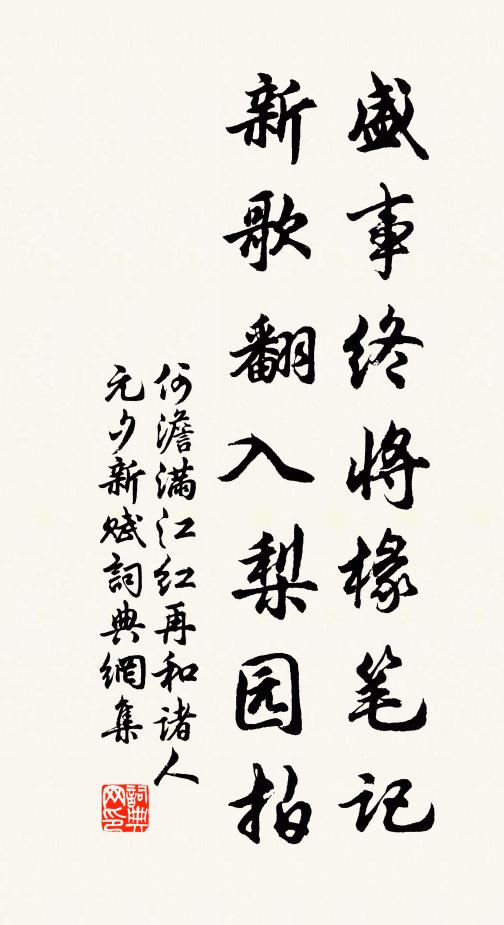 盛事终将椽笔记
新歌翻入梨园拍
何澹满江红再和諸人
元夕新赋詞典網集
詞典网印